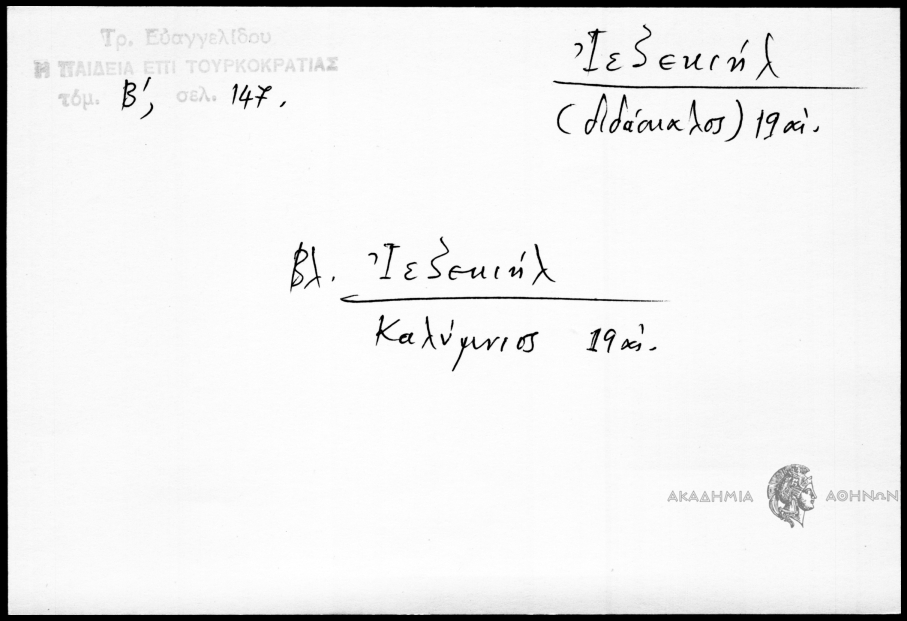 Τρ. Εὐαγγελίδου
Η ΠΑΙΔΕΙΑ ΕΠΙ ΤΟΥΡΚΟΚΡΑΤΙΑΣ
τόμ. Β', σελ. 147.
Ἰεζεκιήλ
(διδάσκαλος) 19 αἰ.
Βλ. Ἰεζεκιήλ
Καλύμνιος 19 αἰ.
ΑΚΑΔΗΜΙΑ ΑΘΗΝΩΝ